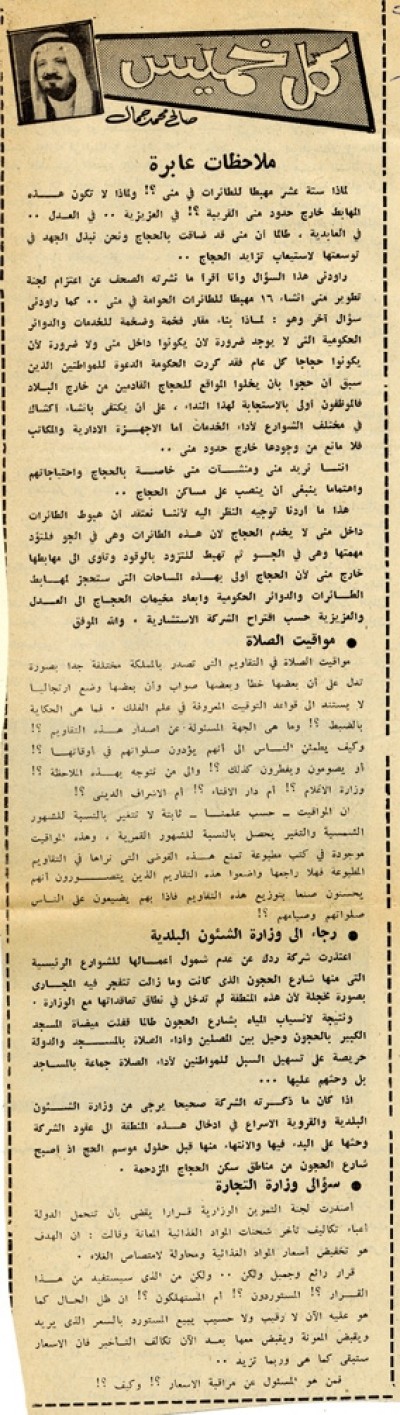 كل خميس
صالح محمد جمال
ملاحظات عابرة
لماذا ستة عشر مهبطا للطائرات في منى ؟! ولماذا لا تكون هـــذه
المهابط خارج حدود منى القريبة ؟! في العزيزية .. في العدل ..
في العابدية ، طالما أن منى قد ضاقت بالحجاج ونحن نبذل الجهد في
توسعتها لاستيعاب تزايد الحجاج ..
راودنى هذا السؤال وأنا أقرأ ما نشرته الصحف عن اعتزام لجنة
تطوير منى انشاء ١٦ مهبطا للطائرات الحوامة في منى .. كما راودنى
سؤال آخر وهو : لمـاذا بناء مقار فخمة وضخمة للخدمات والدوائر
الحكومية التى لا يوجد ضرورة لان يكونوا داخل منى ولا ضرورة لأن
يكونوا حجاجا كل عام فقد كررت الحكومة الدعوة للمواطنين الذين
سبق أن حجوا بأن يخلوا المواقع للحجاج القادمين من خارج البلاد
فالموظفون أولى بالاستجابة لهذا النداء ، على أن يكتفى بانشاء أكشاك
في مختلف الشوارع لأداء الخدمات أما الاجهـزة الادارية والمكاتب
فلا مانع من وجودها خارج حدود منى ..
اننــا نريد منى ومنشـآت منى خاصـة بالحجاج واحتياجاتهم
واهتماما ينبغى أن ينصب على مساكن الحجاج ..
هذا ما أردنا توجيه النظر اليه لأننا نعتقد أن هبوط الطائرات
داخل منى لا يخدم الحجاج لان هذه الطائرات وهى في الجو فلتؤد
مهمتها وهى في الجـو ثم تهبط للتزود بالوقود وتأوى الى مهابطها
خارج منى لأن الحجاج أولى بهـذه المساحات التى ستحجز لمهـابط
الطـائرات والدوائر الحكومية وابعاد مخيمات الحجـاج الى العـدل
والعزيزية حسب اقتراح الشركة الاستشارية . والله الموفق
● مواقيت الصلاة
مواقيت الصلاة في التقاويم التى تصدر بالمملكة مختلفة جدا بصورة
تدل على أن بعضها خطأ وبعضها صواب وأن بعضها وضع ارتجاليا
لا يستند الى قواعد التوقيت المعروفة في علم الفلك . فما هى الحكاية
بالضبط ؟! وما هى الجهة المسئولة عن اصدار هـذه التقاويم ؟!
وكيف يطمئن الناس الى أنهم يؤدون صلواتهم في أوقاتها ؟!
أو يصومون ويفطرون كذلك ؟! والى من نتوجه بهـذه الملاحظة ؟!
وزارة الاعلام ؟! أم دار الافتاء ؟! أم الاشراف الدينى ؟!
ان المواقيت ــ حسب علمنـا ــ ثابتة لا تتغير بالنسبة للشهور
الشمسية والتغير يحصل بالنسبة للشهور القمرية ، وهذه المواقيت
موجودة في كتب مطبوعة تمنع هـذه الفوضى التى نراها في التقاويم
المطبوعة فهلا راجعها واضعوا هذه التقاويم الذين يتصـورون أنهم
يحسنون صنعا بتوزيع هذه التقاويم فاذا بهم يضيعون على الناس
صلواتهم وصيامهم ؟!
● رجاء الى وزارة الشئون البلدية
اعتذرت شركة ردك عن عدم شمول أعمـالها للشوارع الرئيسية
التى منها شارع الحجون الذى كانت وما زالت تنفجر فيه المجـارى
بصورة مخجلة لأن هذه المنطقة لم تدخل في نطاق تعاقداتها مع الوزارة .
ونتيجة لانسياب المياه بشارع الحجون طالما قفلت ميضأة المسجد
الكبير بالحجون وحيل بين المصلين وأداء الصلاة بالمســجد والدولة
حريصة على تسهيل السبل للمواطنين لأداء الصلاة جماعة بالمساجد
بل وحثهم عليها ...
اذا كان ما ذكـرته الشركة صحيحا يرجى من وزارة الشـئون
البلدية والقروية الاسراع في ادخال هـذه المنطقة الى عقود الشركة
وحثها على البدء فيها والانتهاء منها قبل حلول موسم الحج اذ أصبح
شارع الحجون من مناطق سكن الحجاج المزدحمة .
● سؤالى وزارة التجارة
أصدرت لجنة التموين الوزارية قرارا يقضى بأن تتحمل الدولة
أعباء تكاليف تأخر شحنات المواد الغذائية المعانة وقالت : ان الهدف
هو تخفيض أسعار المواد الغذائية ومحاولة لامتصاص الغلاء .
قرار رائع وجميل ولكن .. ولكن من الذى سيستفيد من هـذا
القرار ؟! المستوردون ؟! أم المستهلكون ؟! ان ظل الحال كما
هو عليه الآن لا رقيب ولا حسيب يبيع المستورد بالسعر الذى يريد
ويقبض المعونة ويقبض معها بعد الآن تكاليف التأخير فان الاسعار
ستبقى كما هى وربما تزيد ..
فمن هو المسئول عن مراقبة الاسعار ؟! وكيف ؟!